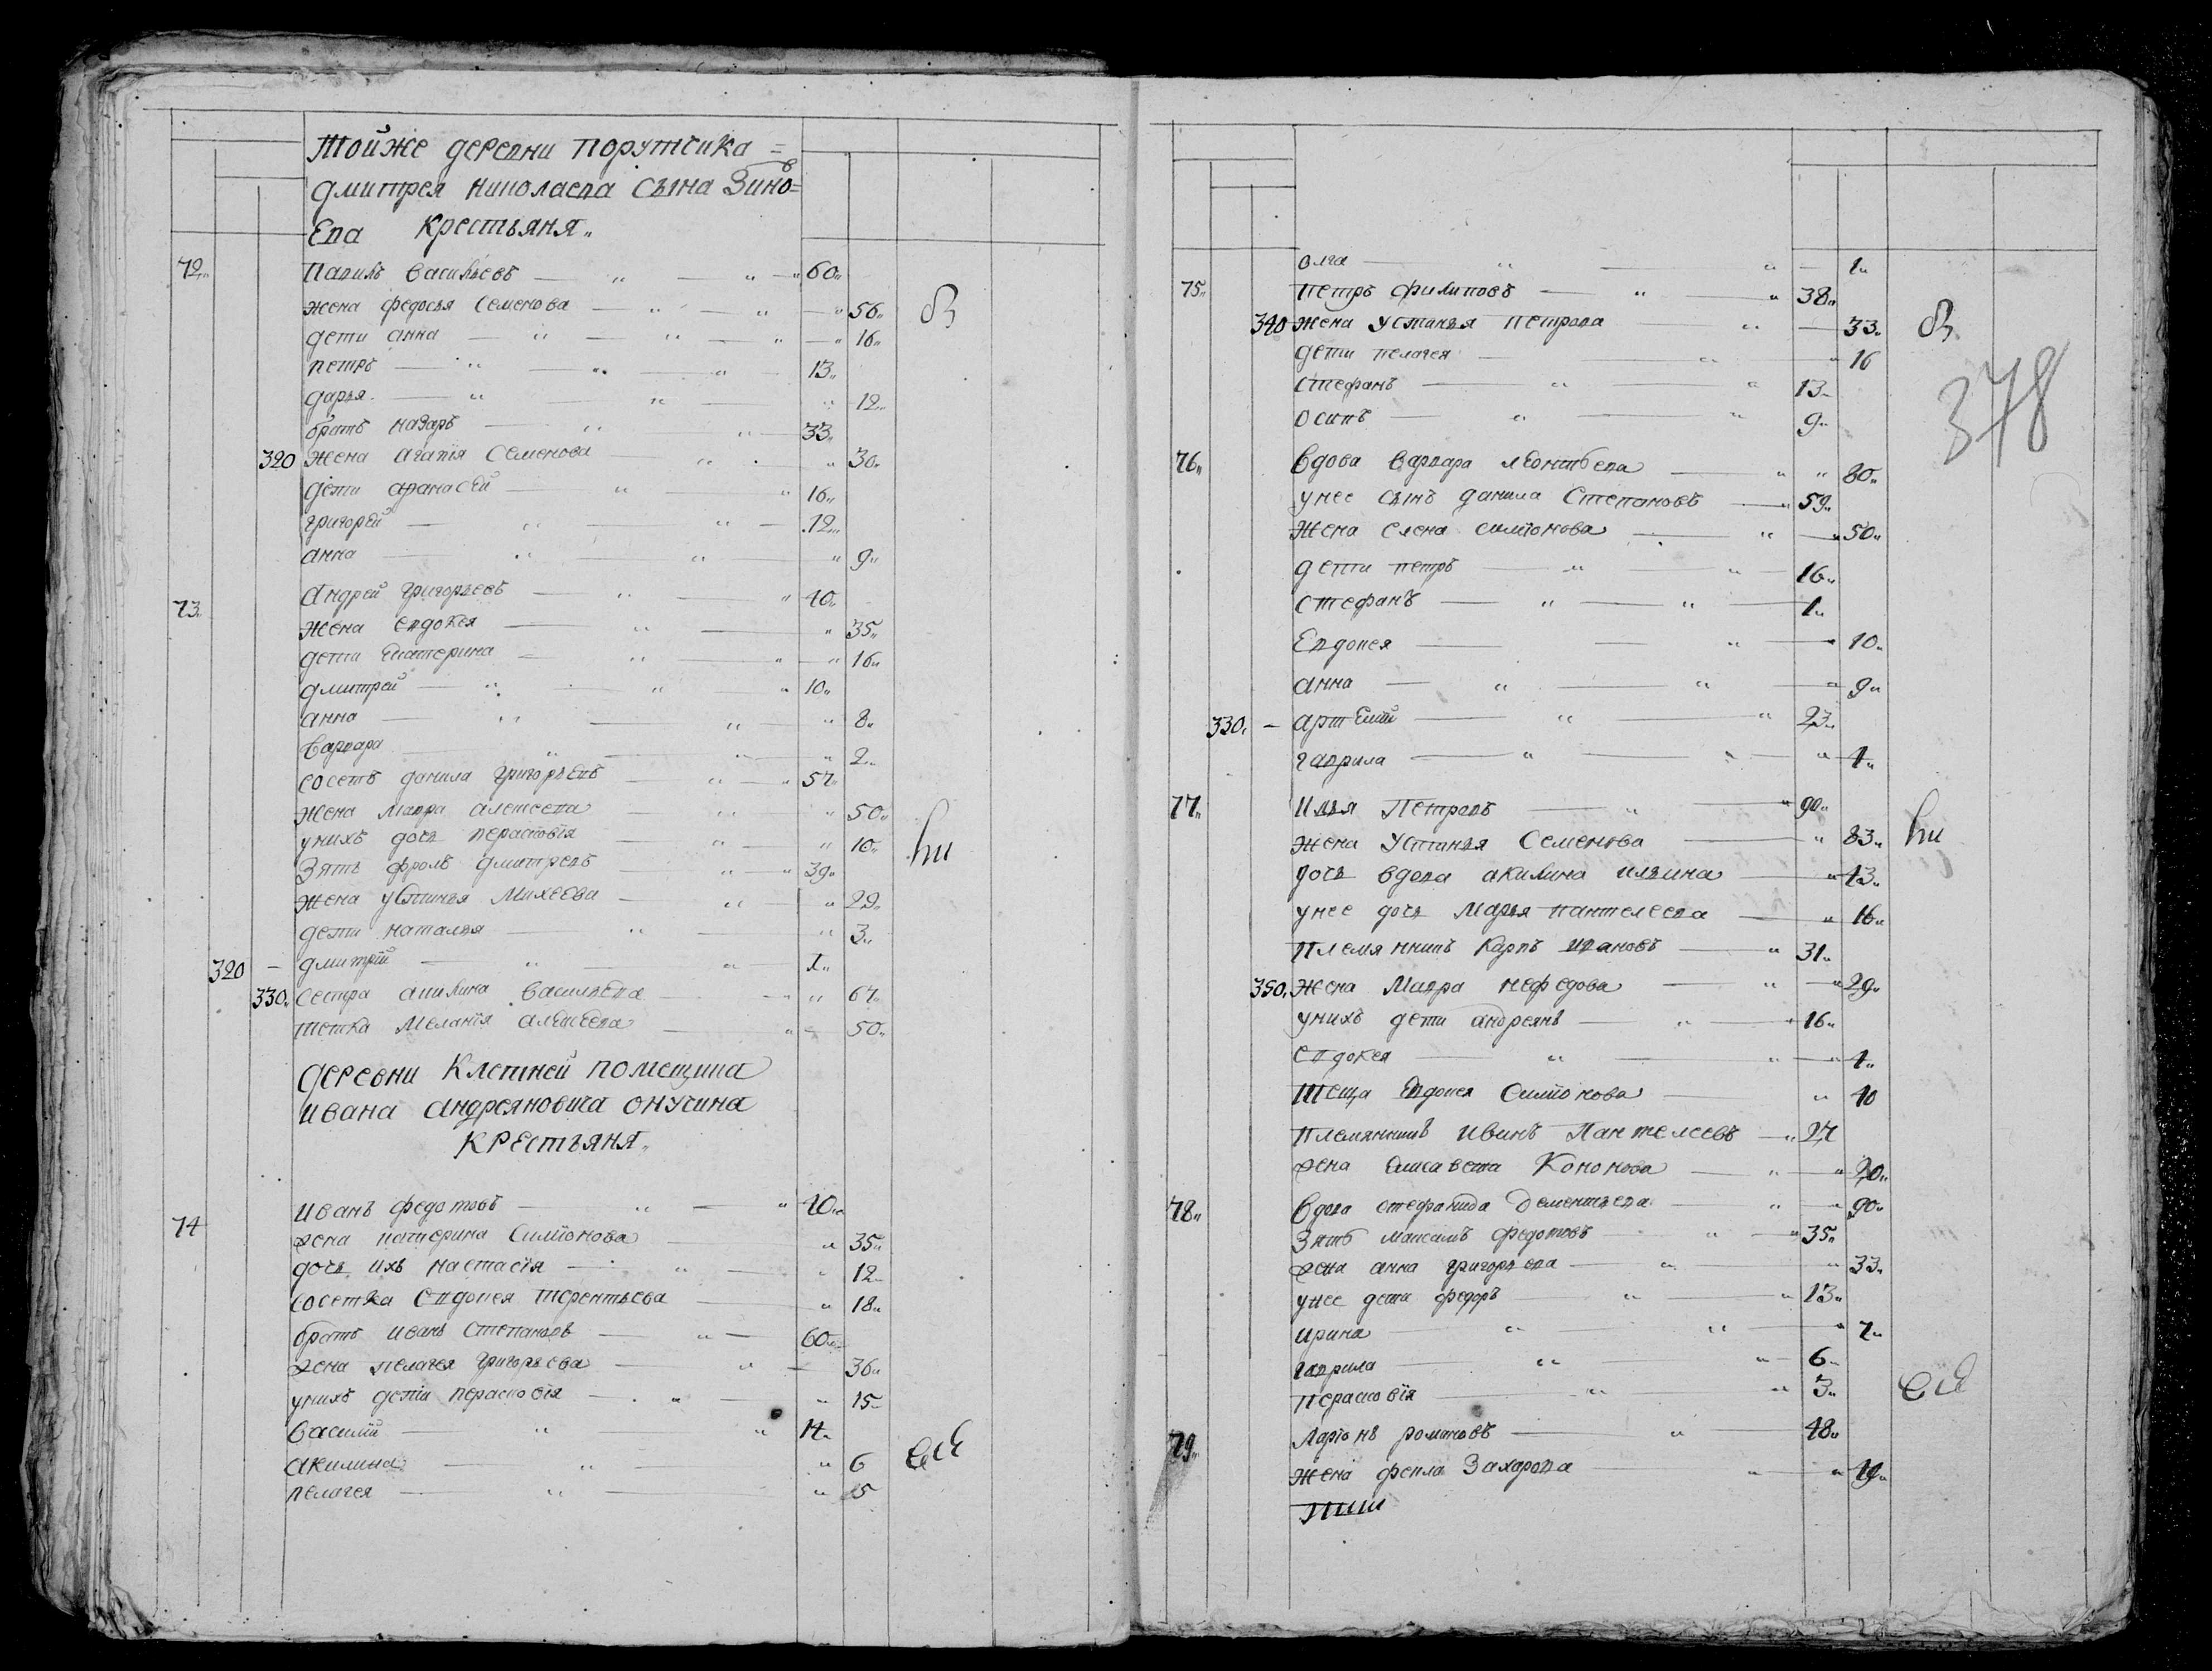 Тойже деревни порутчика =
дмитрея николаева сына Зинов=
Ева крестьяня„
72„ Павилъ васильевъ — „ — „ 60„
жена федосья семенова — „ — „ — 56„
дети анна — „ — „ — „ — 16„
петръ — „ — „ — „ 13„
дарья — „ — „ — „ 12„
братъ назаръ — „ „ — 33„
320 жена агапїя семенова — „ „ 30„
дети афанасей — „ „ 16„
григорей — „ „ — 12„
анна — „ „ „ 9„
73„ андрей григорьевъ — „ — „ 40„
жена евдокея — „ — „ 35„
дети екатерина — „ — „ — „ 16„
дмитрей — „ „ — „ 10„
анна — „ — „ „ 8„
варвара — „ — „ „ 2„
сосетъ данила григорьевъ — „ — „ 57„
жена мавра алексеева — „ — „ 50„
унихъ дочь перасковїя — „ — „ 10„
зять фролъ дмитревъ — „ — „ 39„
жена устинья михеева — „ — „ 29„
дети наталья — „ — „ 3„
320 — дмитрїй — „ — „ 1„
330„ сестра акилина васильева — „ „ 67„
тетка меланїя алексеева — „ — 50„
деревни Клетней помещика
ивана андреяновича онучина
крестьяня„
74 иванъ федотовъ — „ — „ 40„
жена катерина симїонова — „ 35„
дочь ихъ настасїя — „ — „ 12
сосетка евдокея терентьева — „ 18„
братъ иванъ степановъ — „ — 60„
жена пелагея григорьева — „ — 36„
унихъ дети перасковїя — „ — „ 15
василїй — „ „ 14„
акилина — „ „ 6
пелагея — „ — „ 5
олга — „ — „ — 1„
75„ петръ филиповъ — „ — „ 38„
340 жена устинья петрова — „ — 33„
дети пелагея — „ — „ 16
стефанъ — „ — „ 13„
осипъ — „ — „ 9„
378
76„ вдова варвара леонтьева — „ „ 80„
унее сынъ данила степановъ — „ 59„
жена елена симїонова — „ — „ 50„
дети петръ — „ — „ — 16„
стефанъ — „ — „ — 1„
Евдокея — — „ — 10„
анна — „ — „ — „ 9„
330„ — артемїй — „ — „ 23„
гаврила — „ — „ — „ 1„
77„ илья петровъ — „ — „ 90„
жена устинья семенова — „ 83„
дочь вдова акилина ильина — „ 43„
унее дочь марья пантелеева — „ 16„
племянникъ карпъ ивановъ — „ 31„
350„ жена мавра нефедова — „ — „ 29„
унихъ дети андреянъ — „ — „ 16„
евдокея — „ — „ — „ 1„
теща евдокея симїонова — „ 40
племянникъ иванъ Пантелеевъ — „ 27
жена елисавета Кононова — „ — „ 20„
78„ вдова стефанида Дементьева — „ — „ 90„
зять максимъ федотовъ — „ — „ 35„
жена анна григорьева — „ — „ 33„
унее дети федоръ — „ — „ 13„
ирина — „ — „ — „ 7„
гаврила — „ — „ — 6„
перасковїя — „ — „ 3„
79„ Ларїонъ романовъ — „ — 48„
жена фекла Захарова — „ — „ 49„